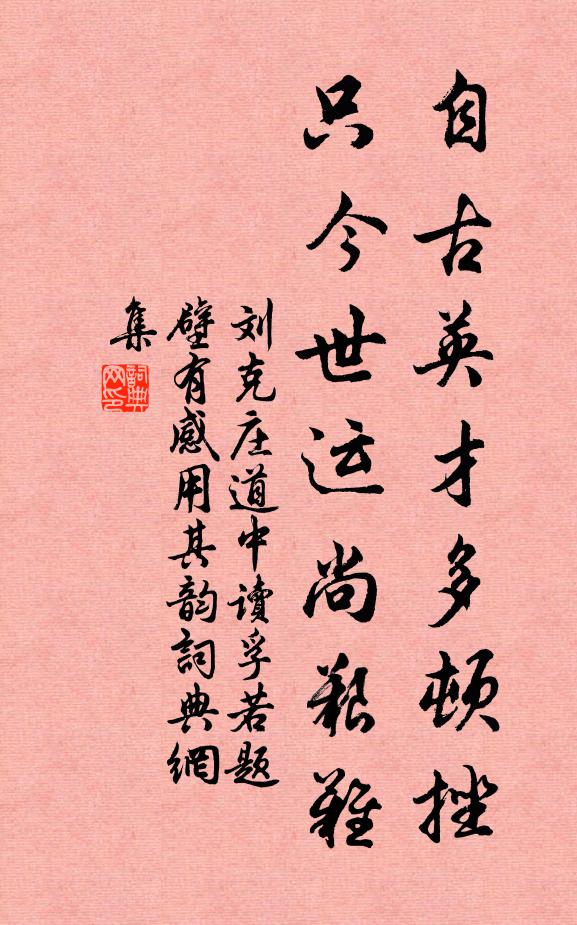 自古英才多顿挫
只今世运尚艰难
刘克庄道中读孚若题
壁有感用其韵词典网
集
词典网印